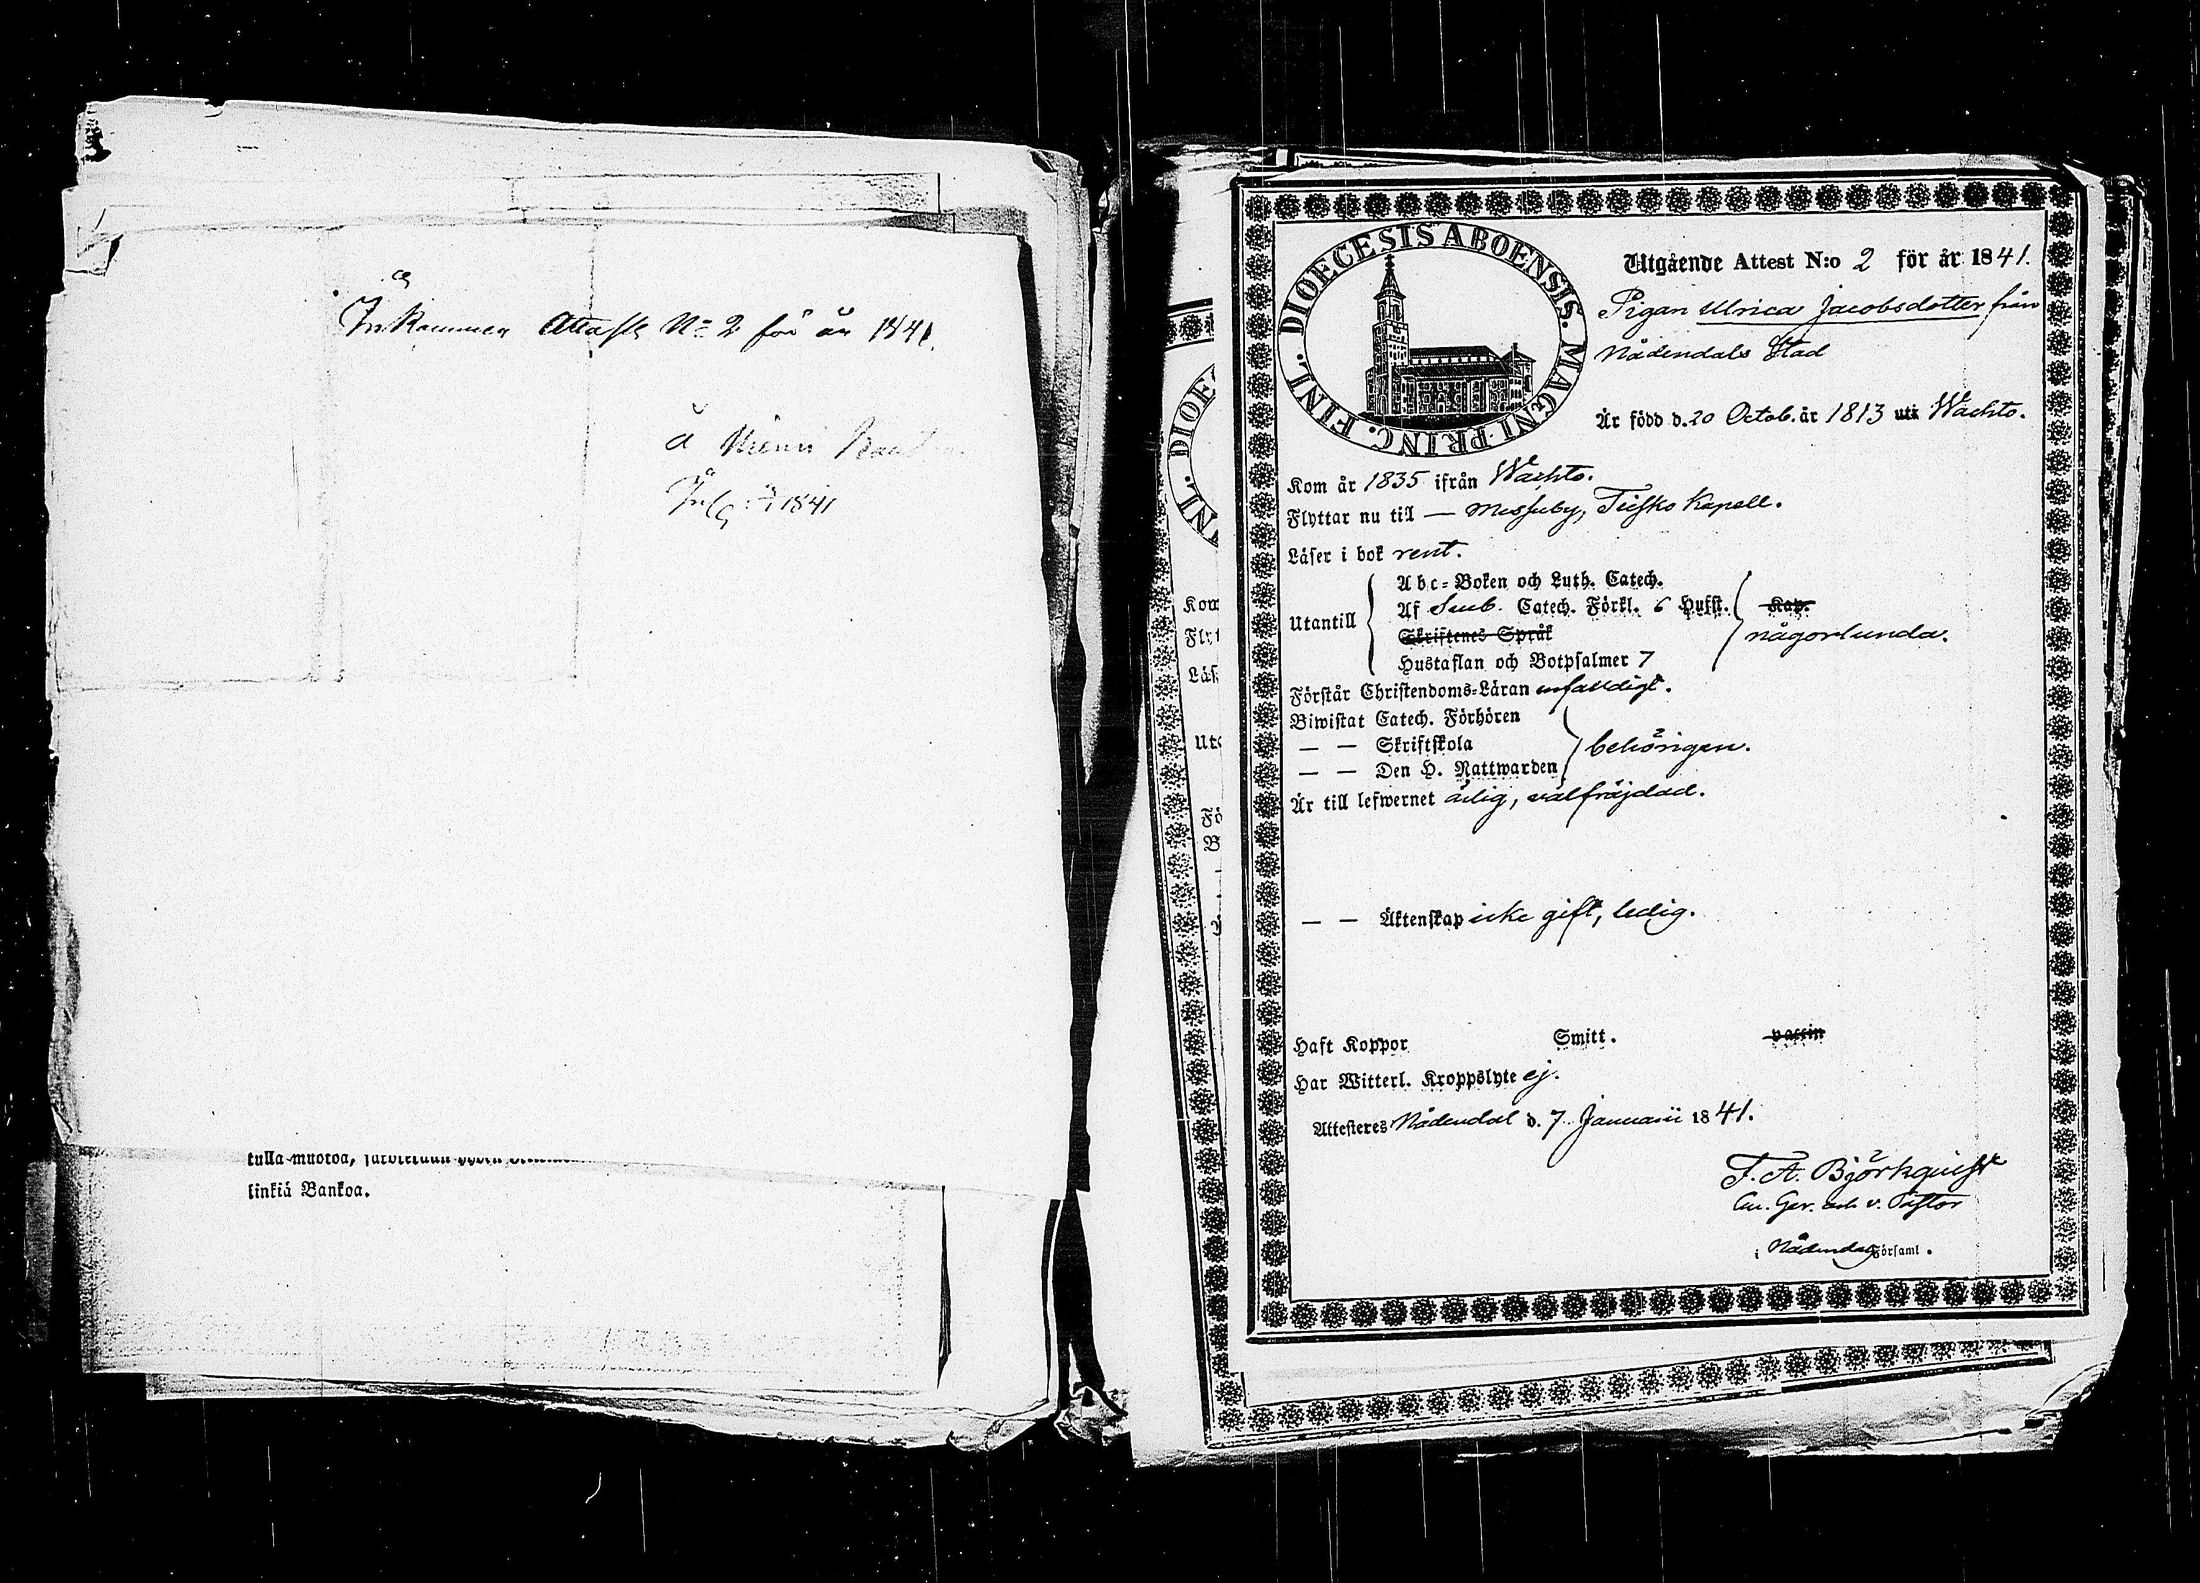 Inkommen Attest No 2 för år 1841.
å
1841
tulla muotoa,
linkiä Bankoa.
DIOECESIS ABOENSIS. MAGNI PRINC. FINL.
Utgående Attest N:o 2 för år 1841.
Pigan Ulrica Jacobsdotter från
Nådendals Stad
Är född d. 20 Octob. år 1813 uti Wachto.
Kom år 1835 ifrån Wachto.
Flyttar nu till — Messuby, Teisko Kapell.
Läser i bok rent.
Abc-Boken och Luth. Catech.
Utantill Af Sveb. Catech. Förkl. 6 Hufst. Kap.
Skriftenes Språk någorlunda.
Hustaflan och Botpsalmer 7
Förstår Christendoms-Läran enfaldigt.
Biwistat Catech. Förhören
— — Skriftskola behörigen.
— — Den H. Nattwarden
Är till lefwernet ärlig, välfräjdad.
— — Äktenskap icke gift, ledig.
Haft Koppor Smitt. vaccin
Har Witterl. Kroppslyte ej.
Attesteras Nådendal d. 7 Januarii 1841.
F. A. Björkqvist
v. Pastor
i Nådendal Församl.
DIOE
INL.
Kom
Flyt
Läs
Uta
Fö
B